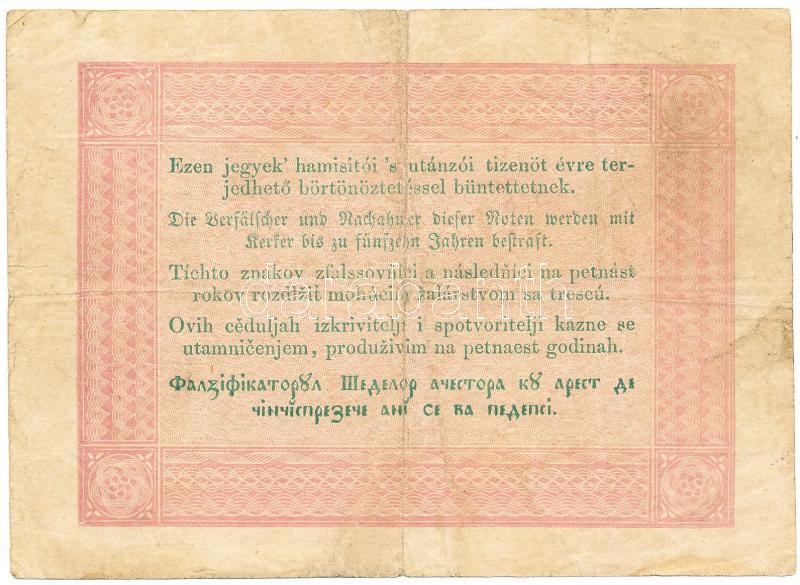 Ezen jegyek' hamisitói 's utánzói tizenöt évre ter-
jedhető börtönöztetéssel büntettetnek.
Die Verfälscher und Nachahmer dieser Noten werden mit
Kerker bis zu fünfzehn Jahren bestraft.
Tíchto znakov zfalssovňíci a následňíci na petnást
rokov rozdlžit mohúcím žalárstvom sa trescú.
Ovih cěduljah izkrivitelji i spotvoritelji kazne se
utamničenjem, produživim na petnaest godinah.
Фалзіфікаторꙋл Шеделор ачестора кꙋ арест де
чінчіспрезече ані се ва педепсі.
darabanth